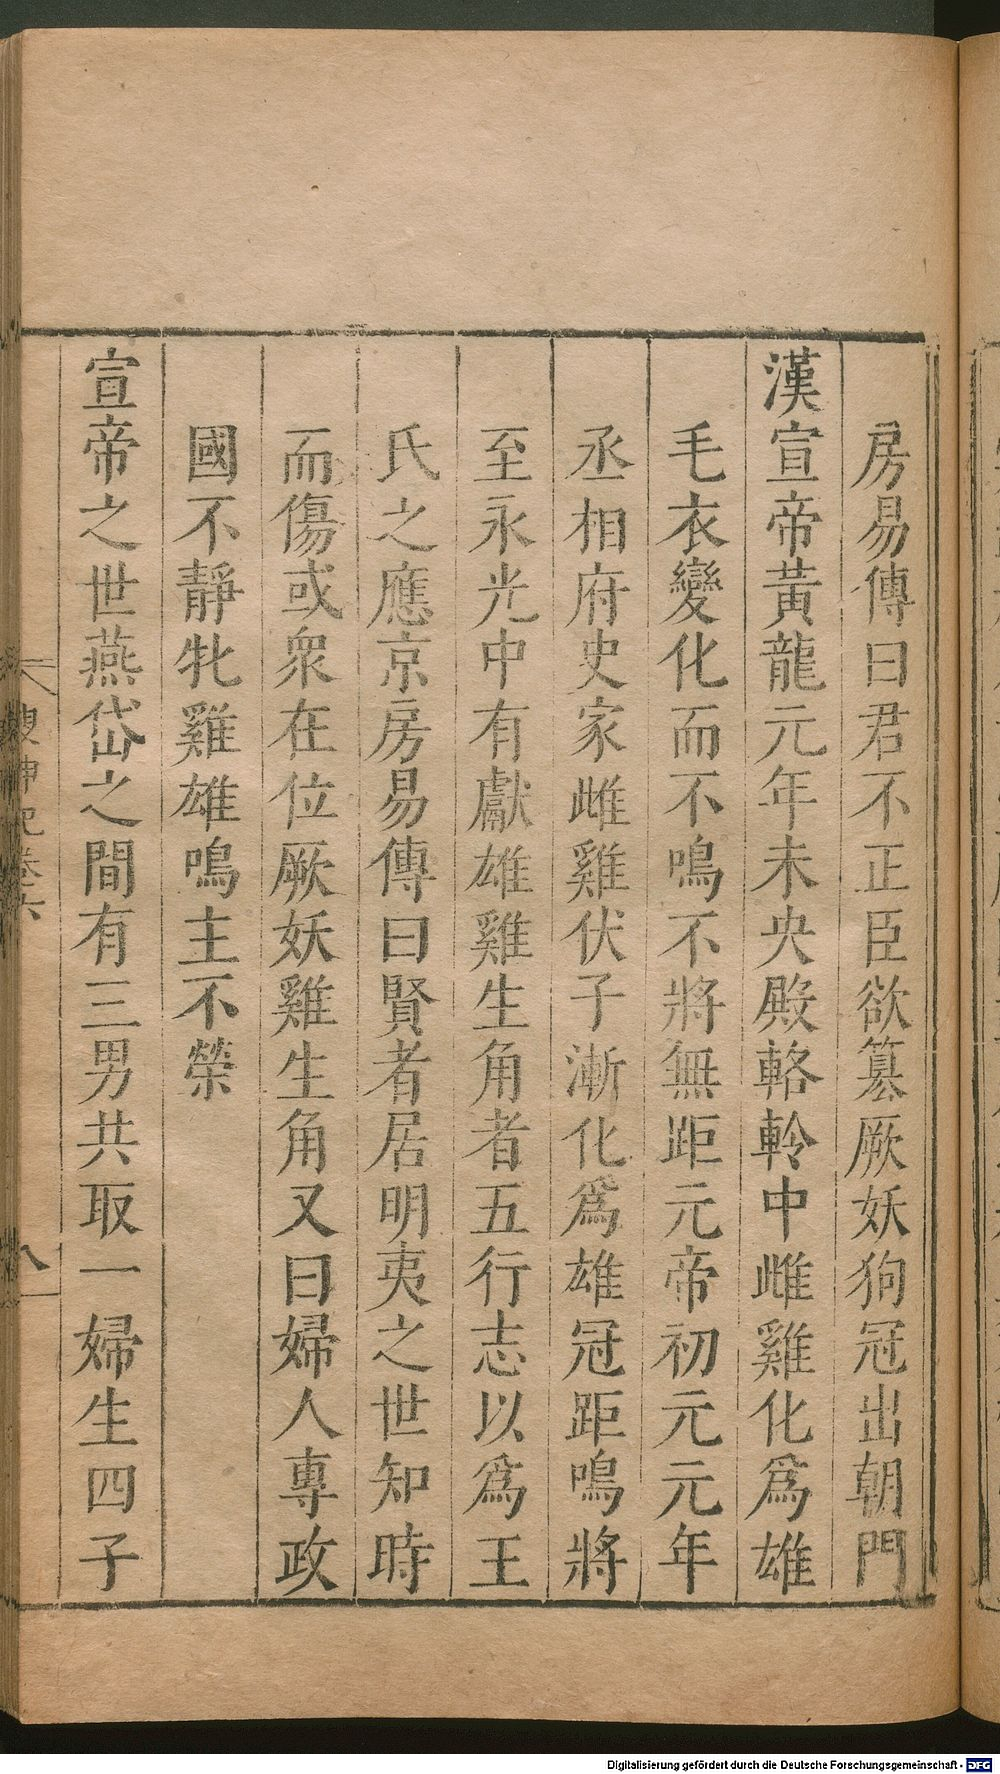 房易傳曰君不正臣欲篡厥妖狗冠出朝門
漢宣帝黃龍元年未央殿輅軨中雌雞化爲雄
毛衣變化而不鳴不將無距元帝初元元年
丞相府史家雌雞伏子漸化爲雄冠距鳴將
至永光中有獻雄雞生角者五行志以爲王
氏之應京房易傳曰賢者居明夷之世知時
而傷或衆在位厥妖雞生角又曰婦人專政
國不靜牝雞雄鳴主不榮
宣帝之世燕岱之間有三男共取一婦生四子
搜神記卷六
八
Digitalisierung gefördert durch die Deutsche Forschungsgemeinschaft - DFG